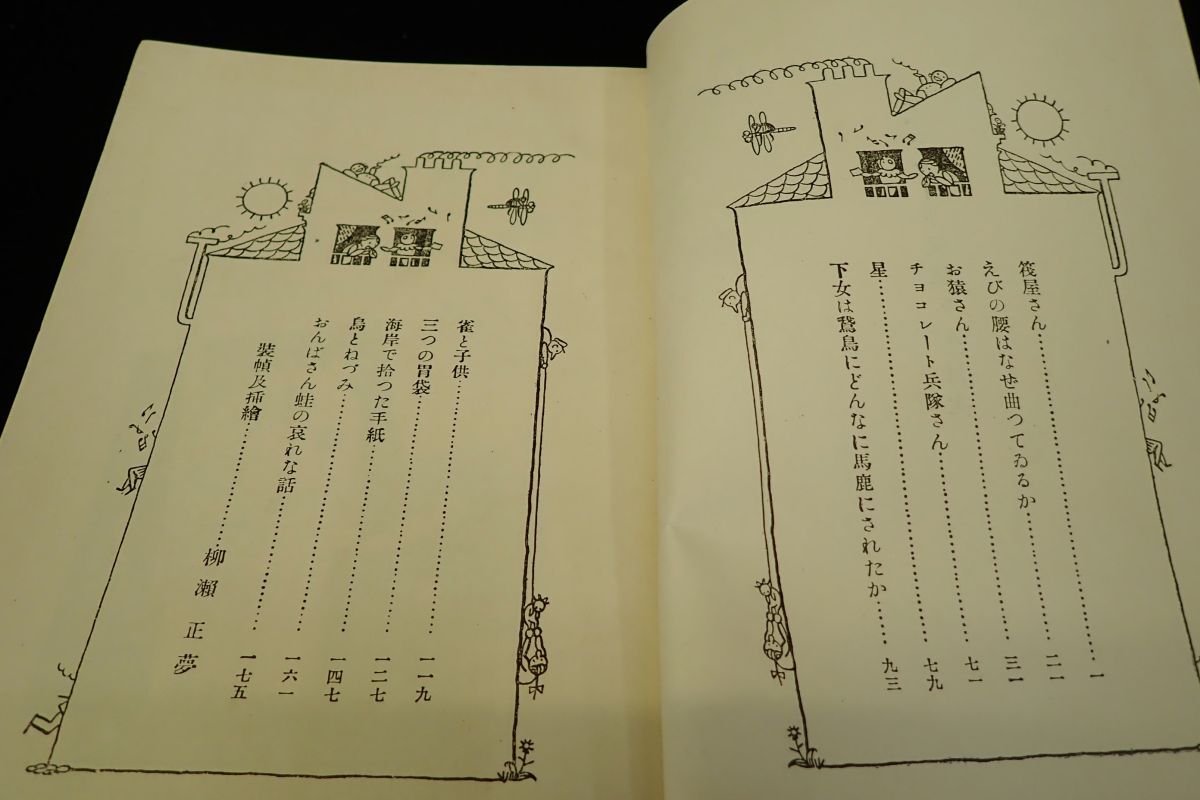 筏屋さん……一
えびの腰はなぜ曲つてゐるか……二一
お猿さん……三一
チョコレート兵隊さん……七一
星……七九
下女は鵞鳥にどんなに馬鹿にされたか……九三
雀と子供……一一九
三つの胃袋……一二七
海岸で拾つた手紙……一四七
鳥とねづみ……一六一
おんばさん蛙の哀れな話……一七五
裝幀及挿繪……柳瀬正夢